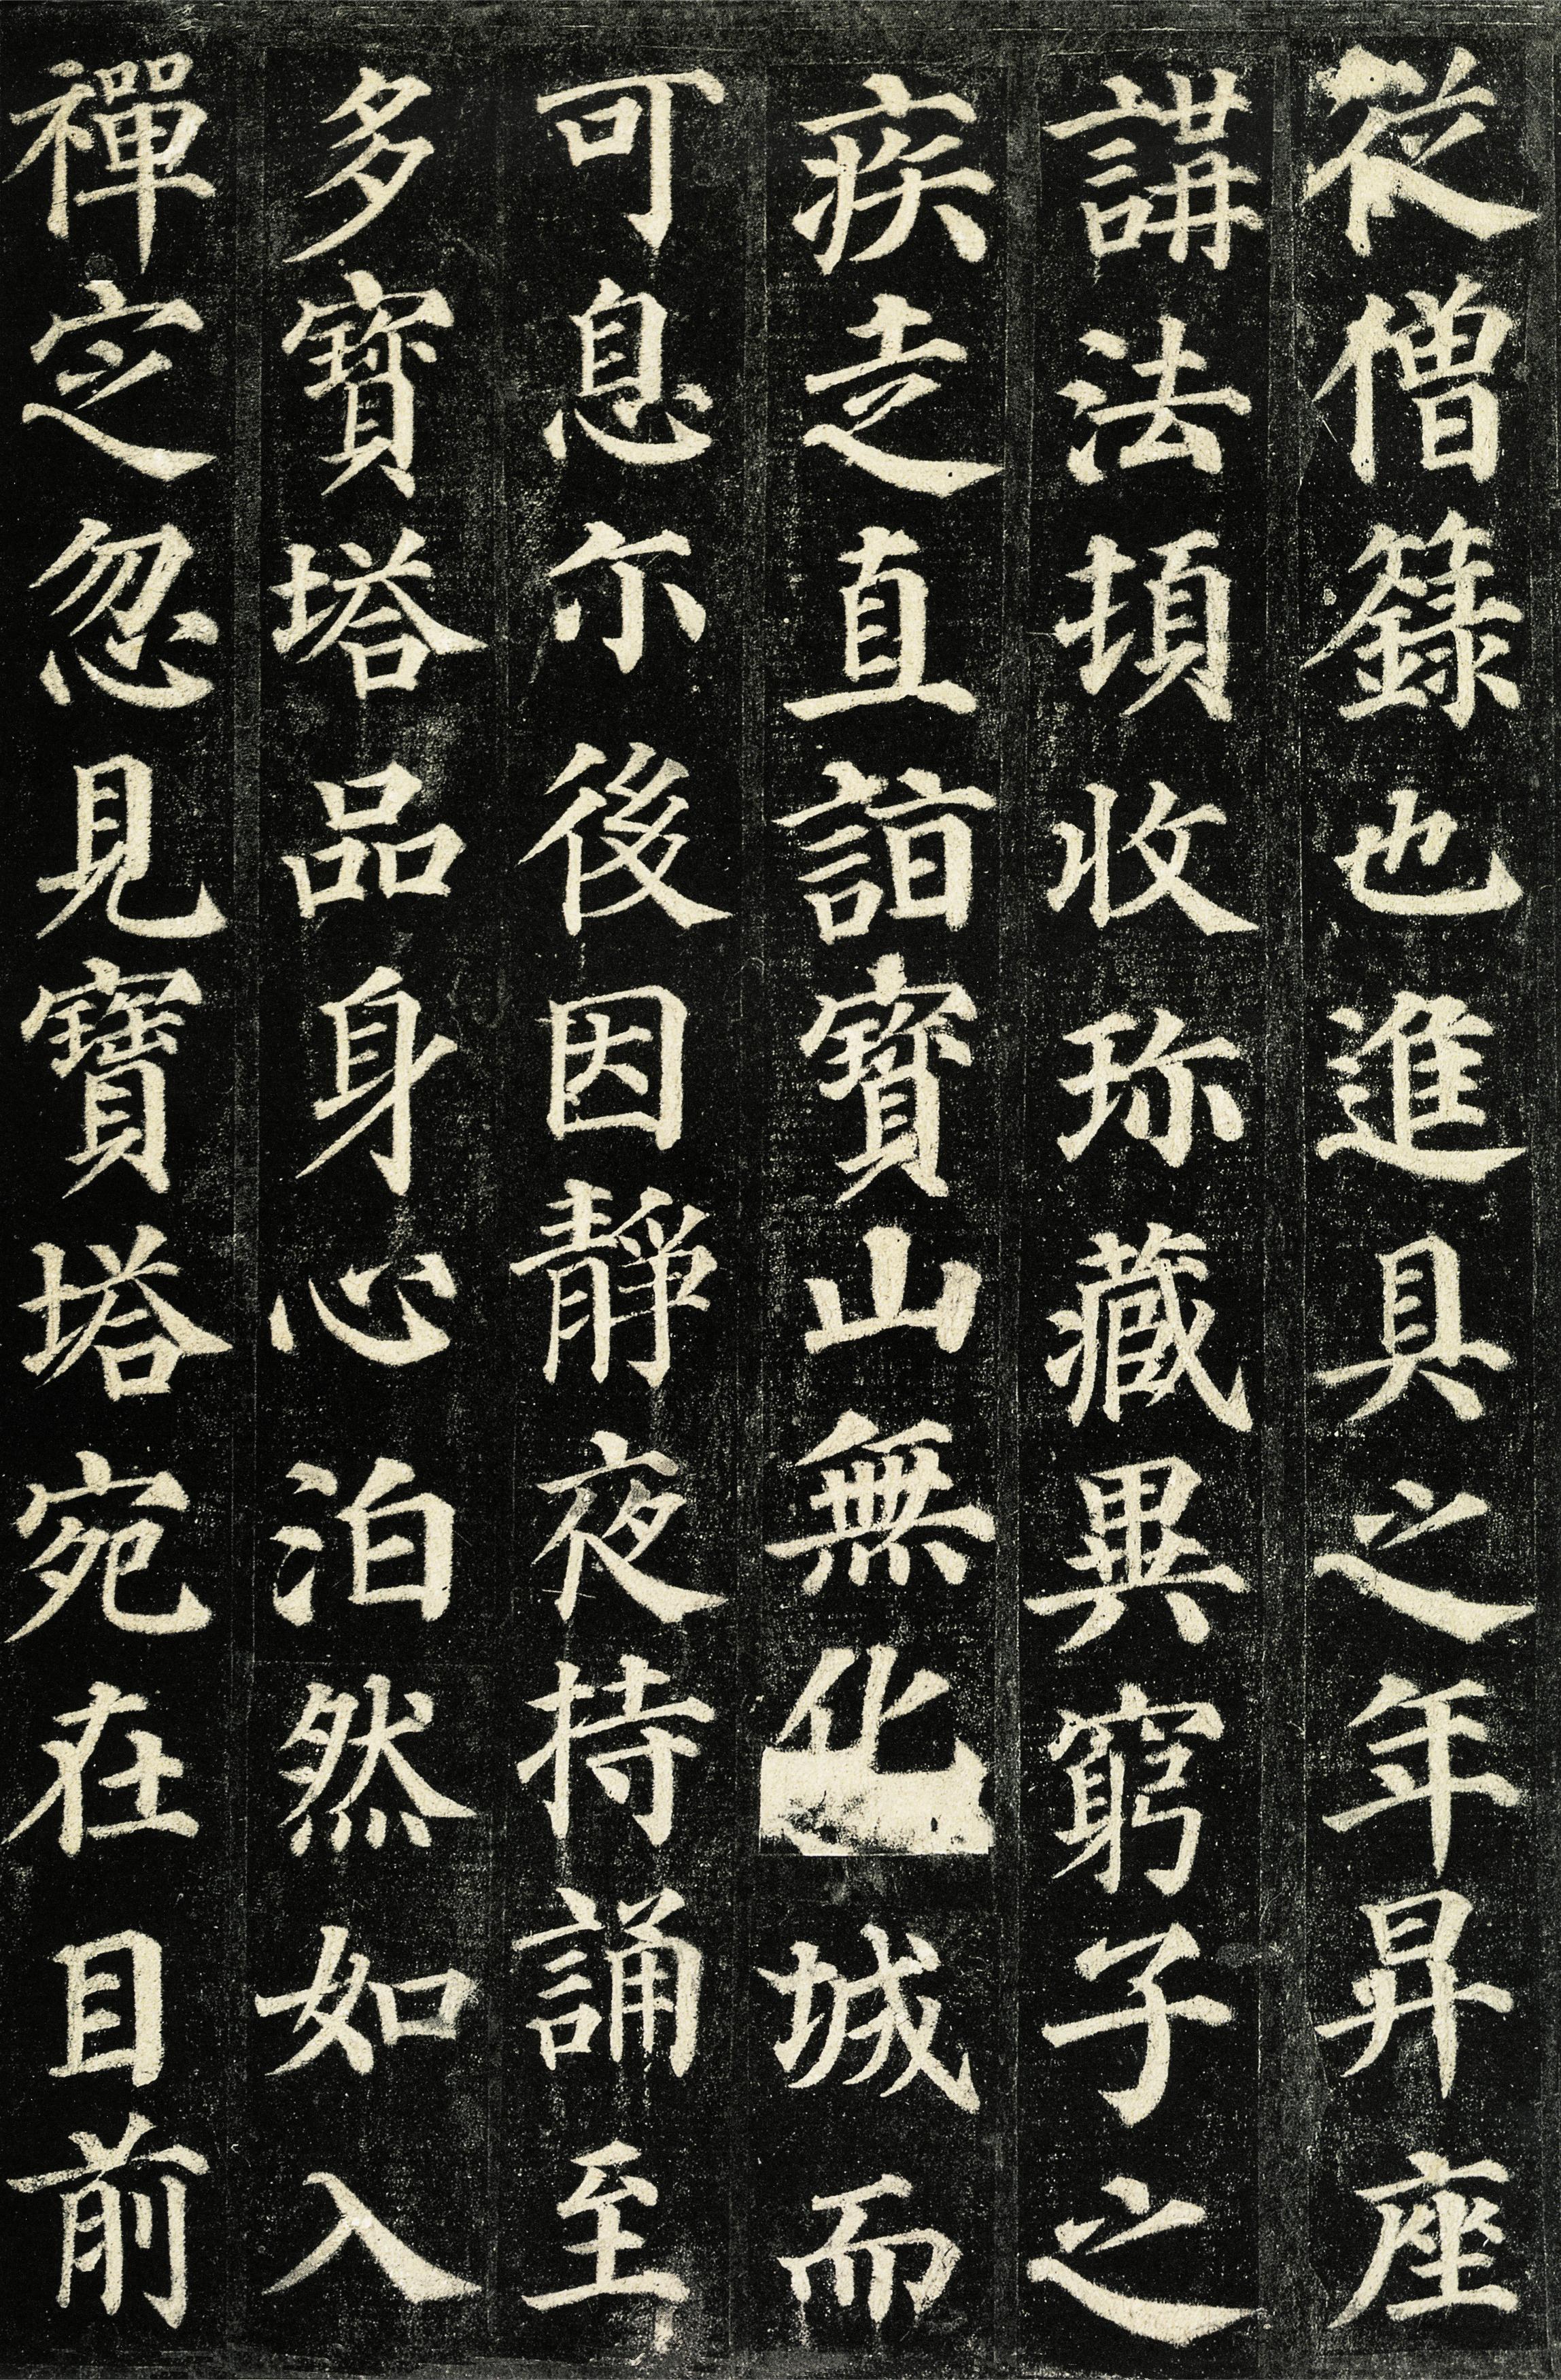 従僧籙也進具之年昇座
講法頓收珎藏異窮子之
疾走直詣寶山無化城而
可息尒後因靜夜持誦至
多寶塔品身心泊然如入
禪定忽見寶塔宛在目前